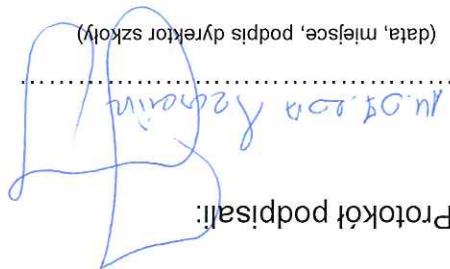 Protokół podpisali:
14.07.2017 Szczecin
(data, miejsce, podpis dyrektor szkoły)